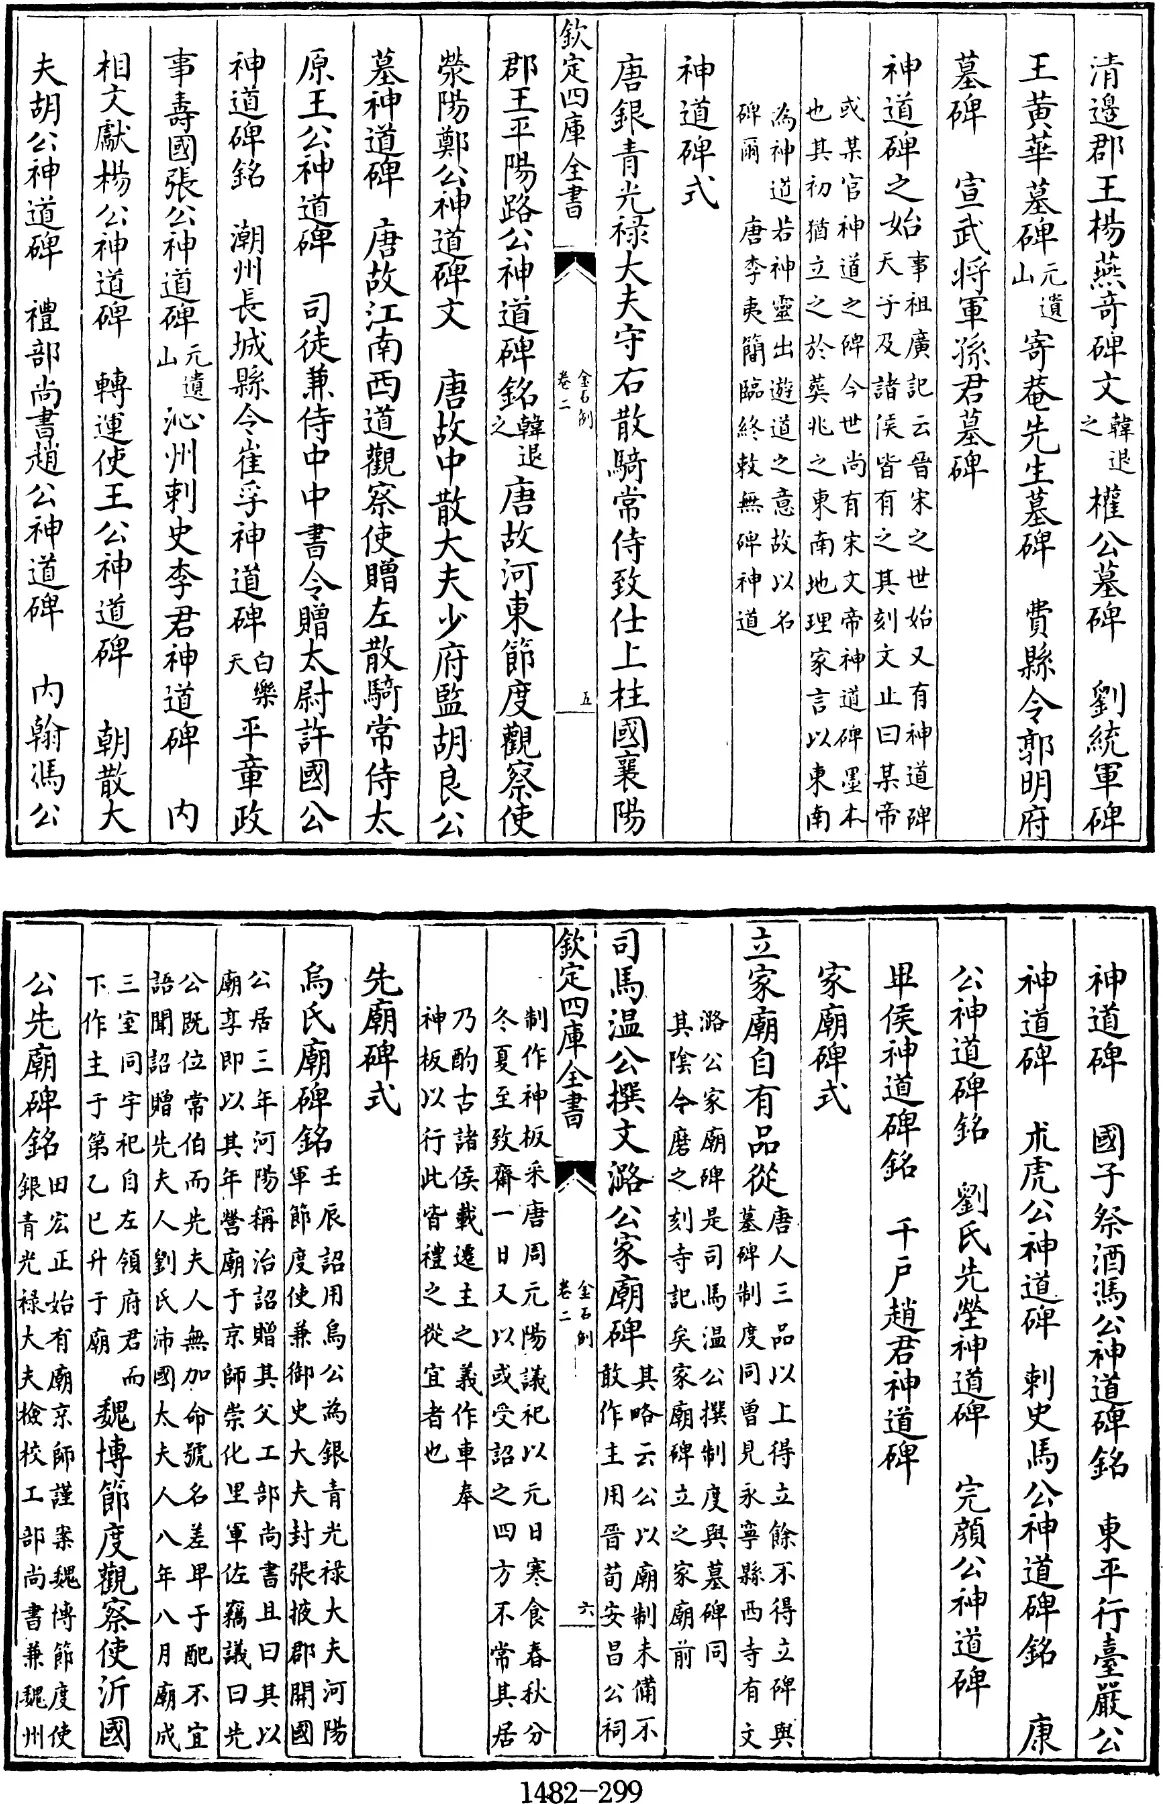 清邊郡王楊燕奇碑文韓退之 權公墓碑 劉統軍碑
王黄華墓碑元遺山 寄菴先生墓碑 費縣令郭明府
墓碑 宣武将軍孫君墓碑
神道碑之始事祖廣記云晉宋之世始又有神道碑天子及諸侯皆有之其刻文止曰某帝
或某官神道之碑今世尚有宋文帝神道碑墨本也其初猶立之於葬兆之東南地理家言以東南
為神道若神靈出遊道之意故以名碑爾 唐李夷簡臨終敕無碑神道
神道碑式
唐銀青光禄大夫守右散騎常侍致仕上柱國襄陽
欽定四庫全書 金石例 卷二 五
郡王平陽路公神道碑銘韓退之 唐故河東節度觀察使
滎陽鄭公神道碑文 唐故中散大夫少府監胡良公
墓神道碑 唐故江南西道觀察使贈左散騎常侍太
原王公神道碑 司徒兼侍中中書令贈太尉許國公
神道碑銘 潮州長城縣令崔孚神道碑白樂天 平章政
事壽國張公神道碑元遺山 沁州刺史李君神道碑 内
相文獻楊公神道碑 轉運使王公神道碑 朝散大
夫胡公神道碑 禮部尚書趙公神道碑 内翰馮公
神道碑 國子祭酒馮公神道碑銘 東平行臺嚴公
神道碑 朮虎公神道碑 刺史馬公神道碑銘 康
公神道碑銘 劉氏先塋神道碑 完顔公神道碑
畢侯神道碑銘 千戸趙君神道碑
家廟碑式
立家廟自有品從唐人三品以上得立餘不得立碑與墓碑制度同曽見永寧縣西寺有文
潞公家廟碑是司馬温公撰制度與墓碑同其陰今磨之刻寺記矣家廟碑立之家廟前
司馬温公撰文潞公家廟碑其略云公以廟制未備不敢作主用晉荀安昌公祠
欽定四庫全書 金石例 卷二 六
制作神板采唐周元陽議祀以元日寒食春秋分冬夏至致齋一日又以或受詔之四方不常其居
乃酌古諸侯載遷主之義作車奉神板以行此皆禮之從宜者也
先廟碑式
烏氏廟碑銘壬辰詔用烏公為銀青光禄大夫河陽軍節度使兼御史大夫封張掖郡開國
公居三年河陽稱治詔贈其父工部尚書且曰其以廟享即以其年營廟于京師崇化里軍佐竊議曰先
公既位常伯而先夫人無加命號名差卑于配不宜語聞詔贈先夫人劉氏沛國太夫人八年八月廟成
三室同宇祀自左領府君而下作主于第乙巳升于廟 魏博節度觀察使沂國
公先廟碑銘田宏正始有廟京師謹案魏博節度使銀青光禄大夫檢校工部尚書兼魏州
1482-299